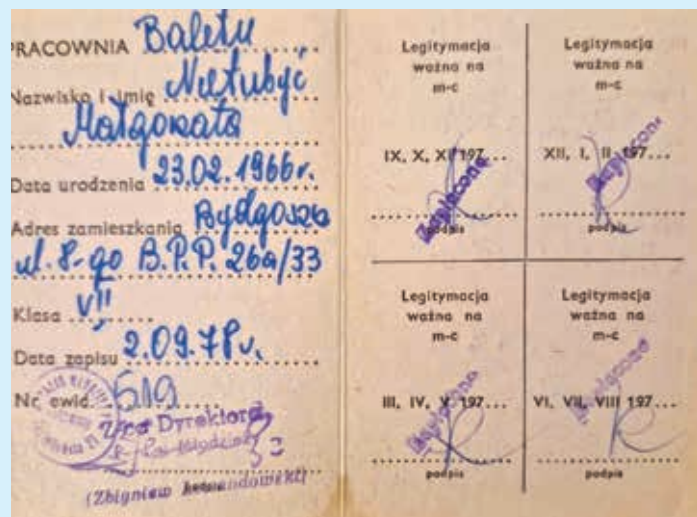 PRACOWNIA Baletu
Nazwisko i imię Nietubyć
Małgorzata
Data urodzenia 23.02.1966r.
Adres zamieszkania Bydgoszcz
ul. 8-go B.P.P. 26a/33
Klasa VII
Data zapisu 2.09.78r.
Nr ewid. 519
Z-ca Dyrektora
(Zbigniew
Legitymacja
ważna na
m-c
IX, X, XI 197...
Zapłacono
podpis
Legitymacja
ważna na
m-c
XII, I, II 197...
Zapłacono
podpis
Legitymacja
ważna na
m-c
III, IV, V 197...
Zapłacono
podpis
Legitymacja
ważna na
m-c
VI, VII, VIII 197...
Zapłacono
podpis